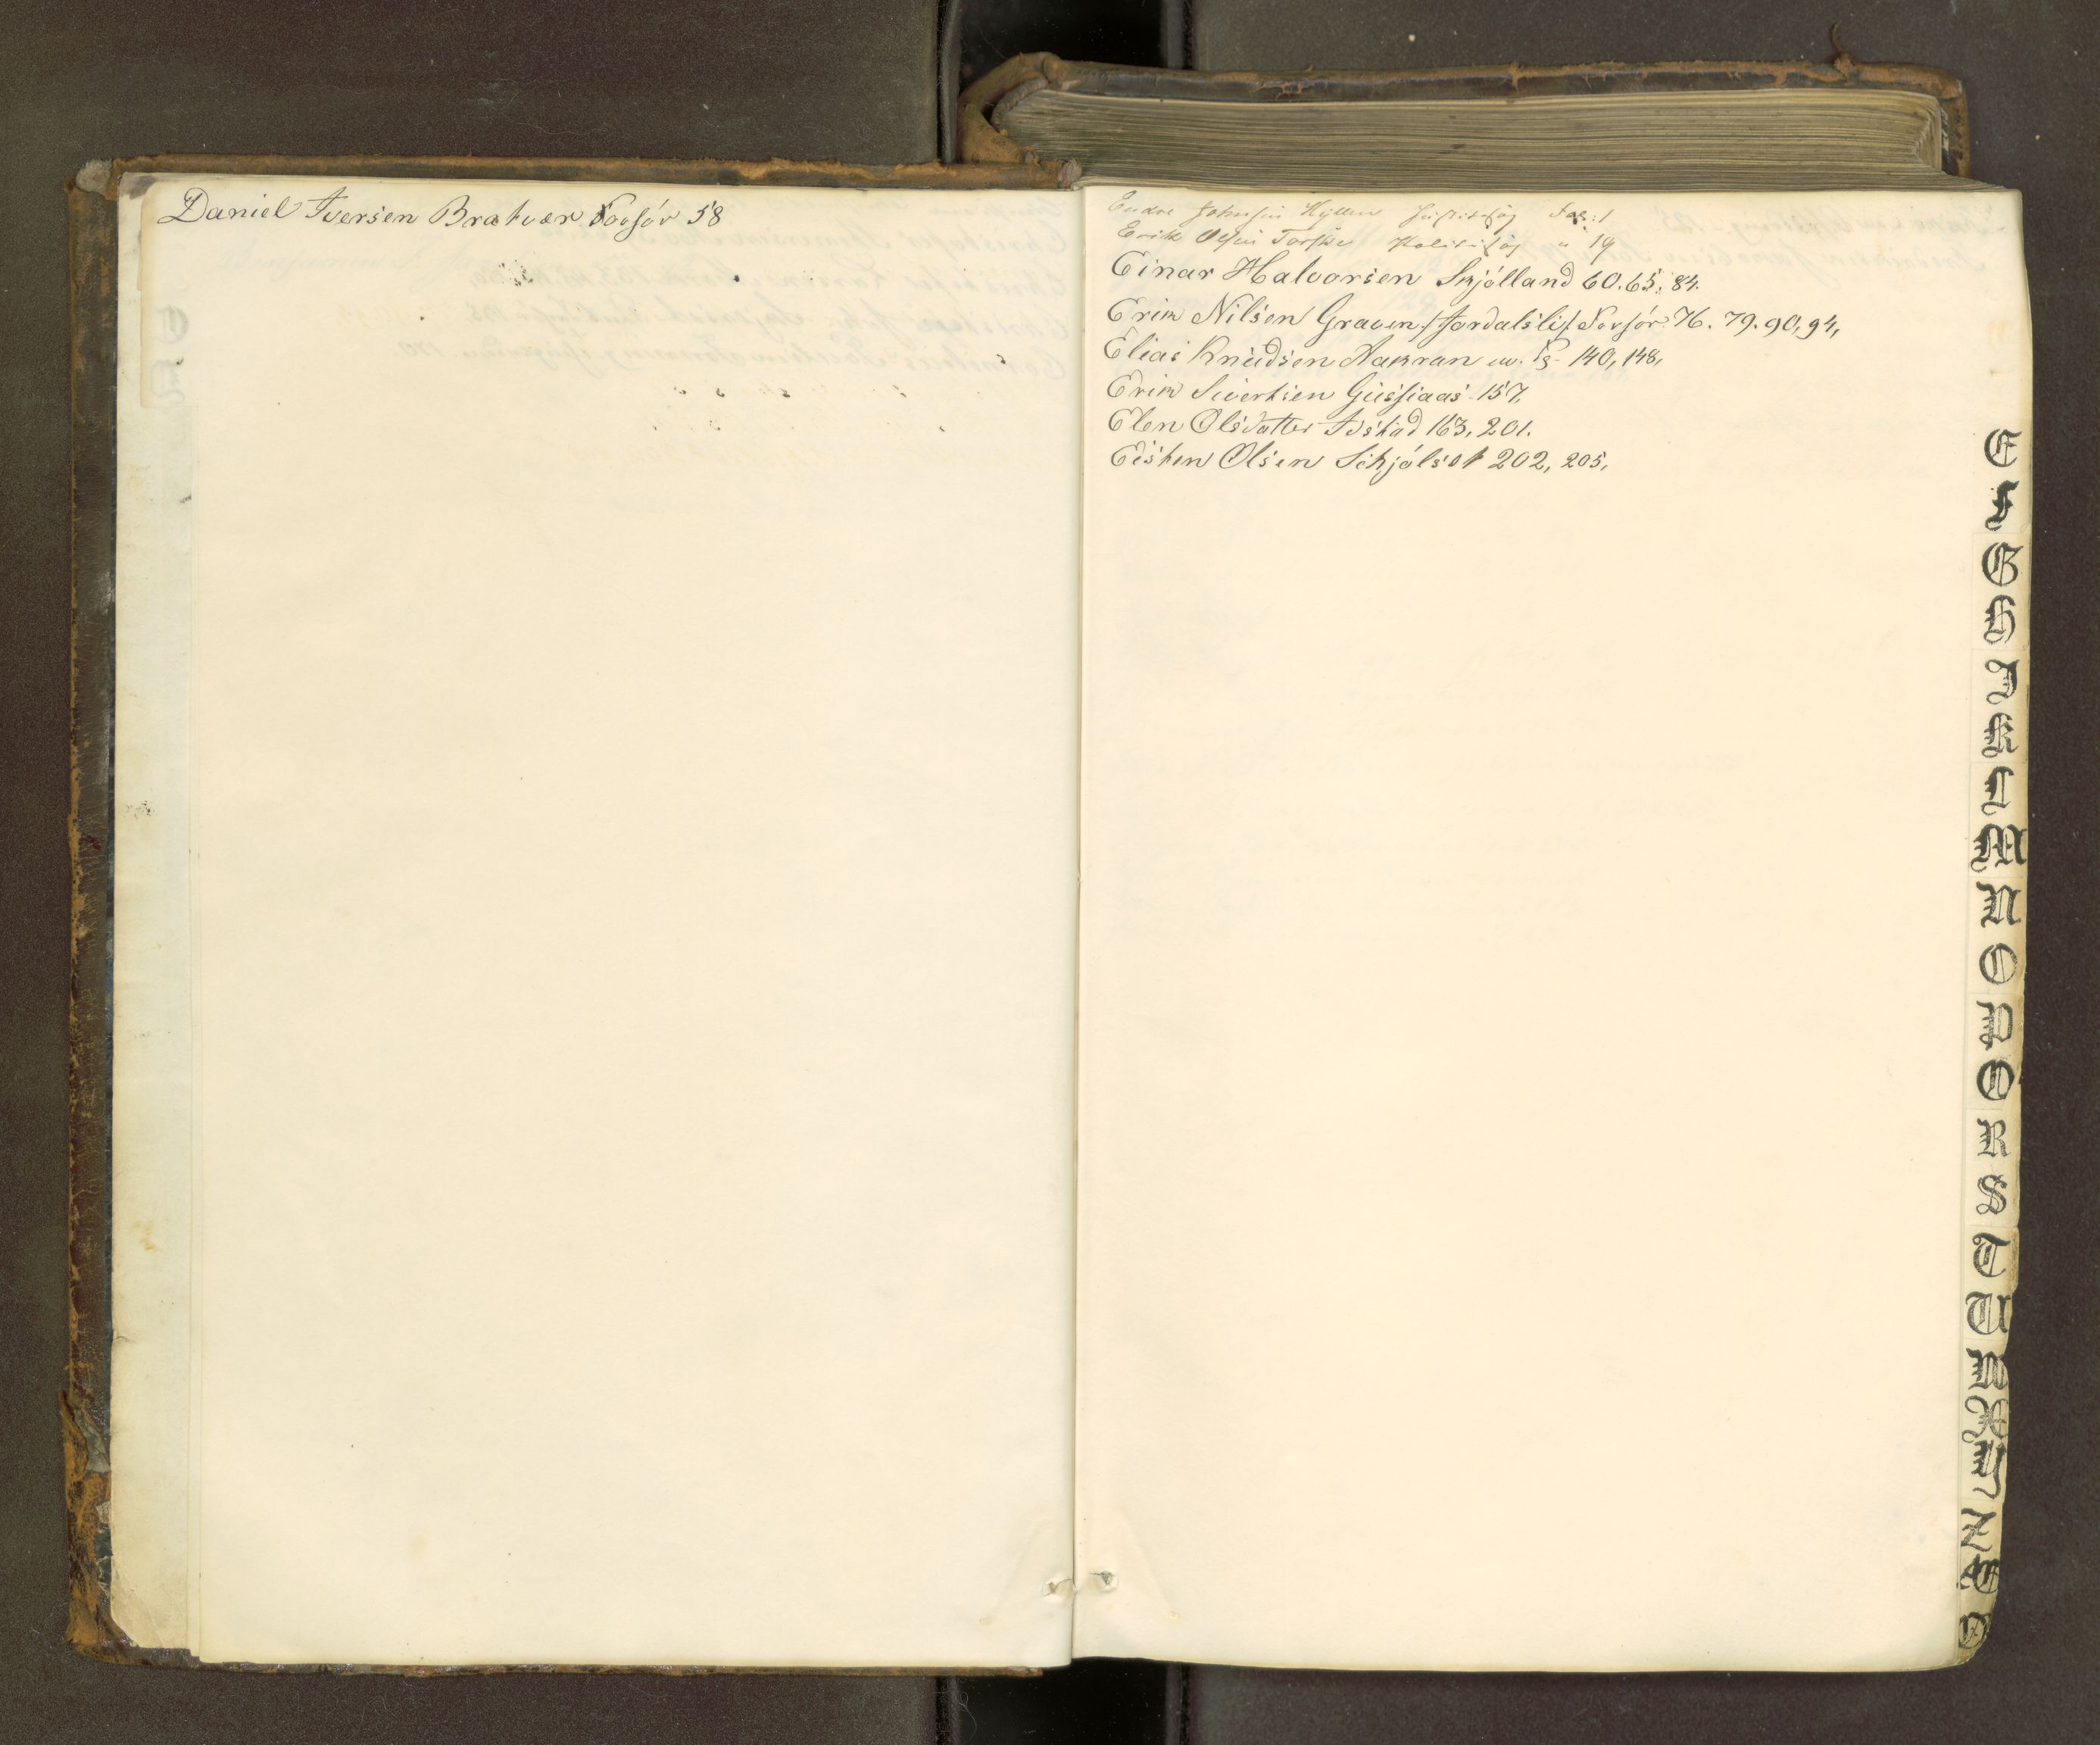 Daniel Iversen Bratvær Forhør 58
Endre Johnsen Hyllen Justitssag Fol: 1
Erik Olsen Torske Politisag " 19
Einar Halvorsen Skjölland 60. 65. 84.
Erik Nilsen Graven /: Jordalsli /: Forhør. 76. 79. 90, 94,
Elias Knudsen Aakran 140, 148,
Erik Sivertsen 157,
Elen Olsdatter Solstad 163, 201.
Eisten Olsen Schjölsot 202, 205,
E
F
G
H
I
K
L
M
N
O
P
Q
R
S
T
U
W
X
Y
Z
Æ
Ø